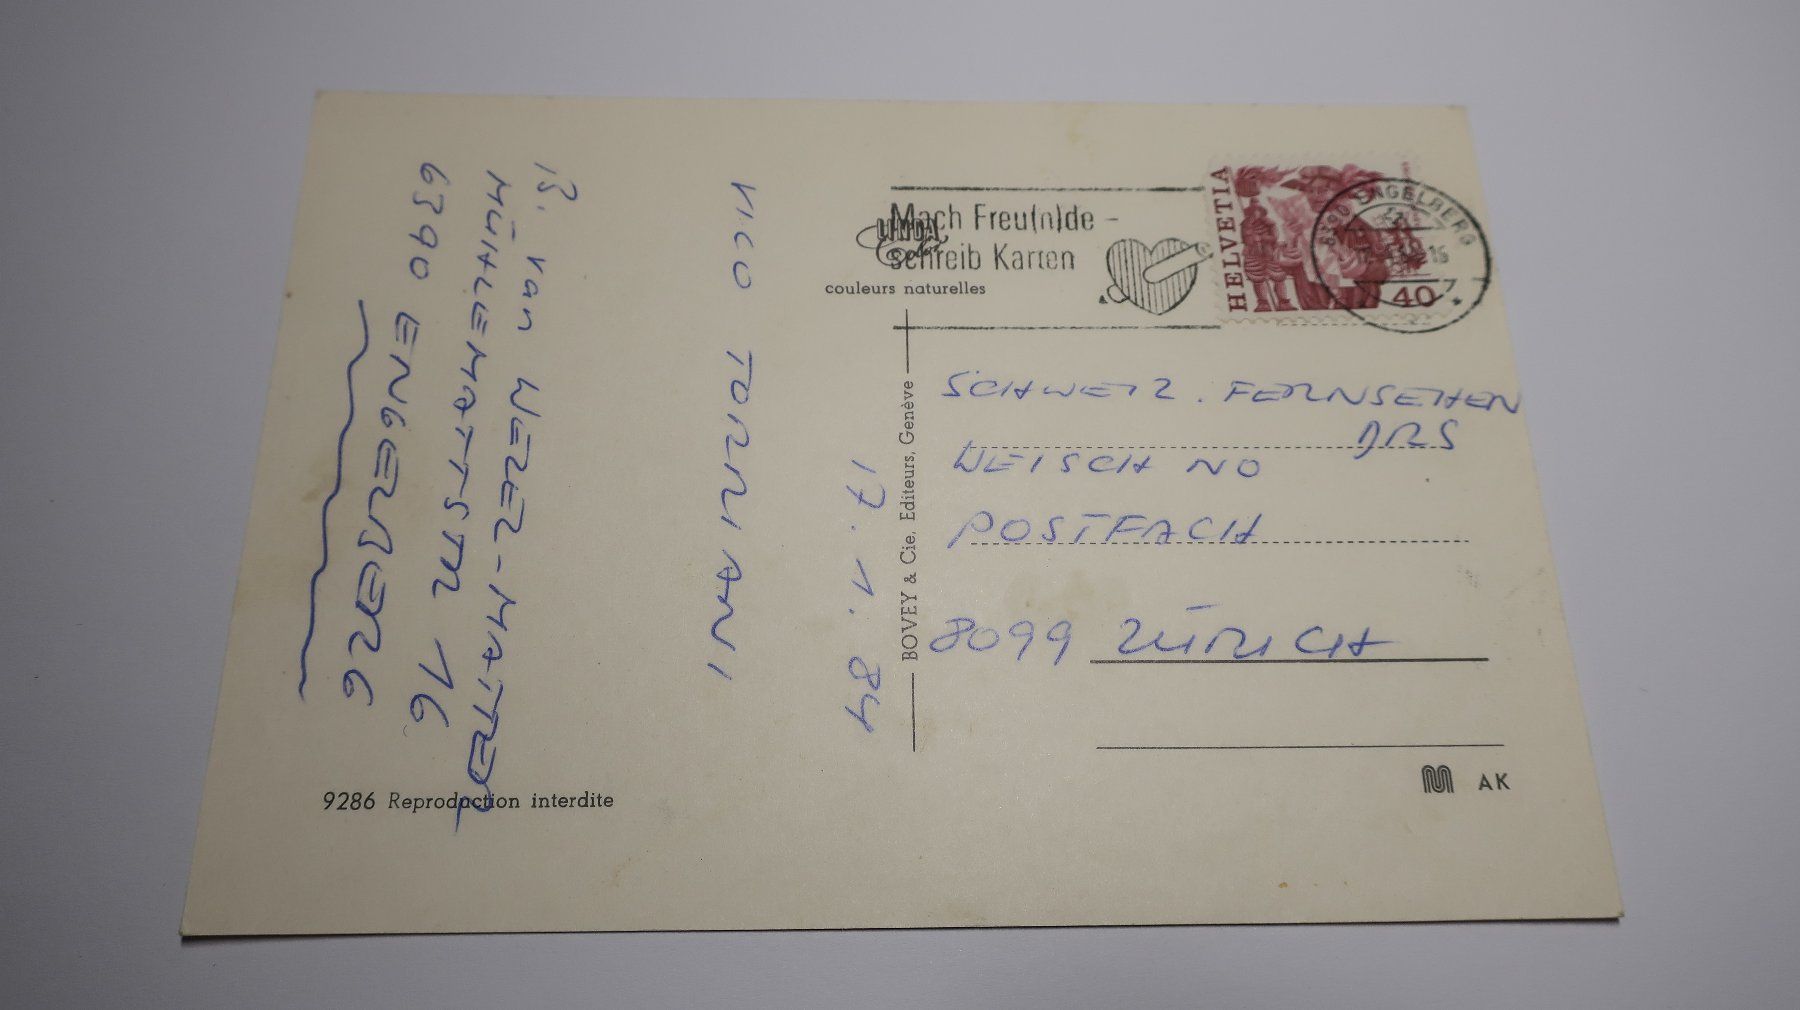 Mach Freu(n)de -
schreib Karten
LINDA
Color
couleurs naturelles
HELVETIA
40
6390 ENGELBERG
SCHWEIZ. FERNSEHEN
DRS
WEISCH NO
POSTFACH
8099 ZÜRICH
BOVEY & Cie, Editeurs, Genève
17. 1. 84
VICO TORRIANI
B. van
MÜHLEMATTSTR 16
6390 ENGELBERG
9286 Reproduction interdite
M AK